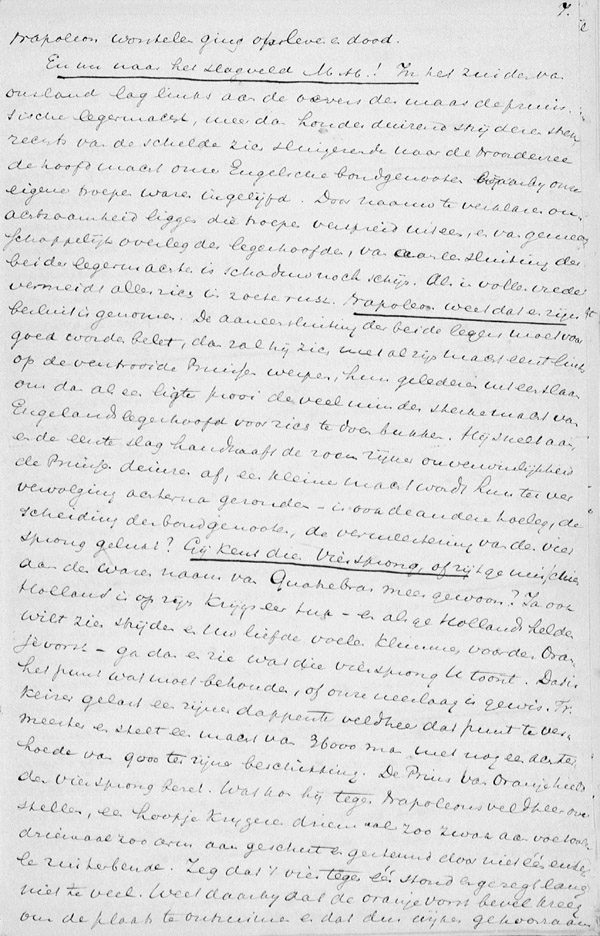 7.
Napoleon worstelen ging op leven en dood.
En nu naar het slagveld M.H.! In het zuiden van
ons land lag links aan de oevers der maas de pruis.
sische legermacht, meer dan honderduizend strijders sterk
rechts van de schelde zich slingerende naar de Noordzee
de hoofdmacht onzer Engelsche bondgenooten waarby onze
eigene troepen waren ingelijfd. Door naauw te verklaren on,
achtzaamheid liggen die troepen verspreid uiteen, en van gemeen
schappelijk overleg der legerhoofden, van aaneensluiting der
beide legermachten is schaduw noch schijn. Als in volle vrede
vermeidt alles zich in zoete rust. Napoleon weet dat en zijn
besluit is genomen. De aaneensluiting der beide legers moet voor
goed worden belet, dan zal hij zich met al zijn macht eerst links
op de verstrooide Pruisen werpen, hun gelederen uiteen slaan
om dan als een ligte prooi de veel minder sterke macht van
Engelands legerhoofd voor zich te doen bukken. Hij snelt aan
en de eerste slag handhaaft de roem zijner onverwinlijkheid
de Pruisen deinzen af, een kleine macht wordt hun ter ver
volging achterna gezonden – is ook de andere toeleg, de
scheiding der bondgenooten, de vermeestering van den vier
sprong gelukt? Gij kent dien viersprong, of zijt ge misschien
aan den waren naam van Quatrebras meer gewoon? Ja ook
Holland is op zijn krijgseer tuk – en als ge Hollands helden
wilt zien strijden en Uw liefde voelen klimmen voor den Oran
jevorst – ga dan en zie wat die viersprong U toont. Das is
het punt wat moet behouden, of onze neerlaag is gewis. Fr.
Keizer gelast een zijner dapperste veldheer dat punt te ver
meesteren en stelt een macht van 36000 man met nog een achter
hoede van 9000 ter zijner beschikking. De Prins van Oranje hield
den viersprong bezet. Wat kon hij tegen Napoleons veldheer over
stellen, een hoopje krygers driemaal zoo zwak aan voetvolk
driemaal zoo arm aan geschut en gesteund door niet één enke
le ruiterbende. Zeg dat 't vier tegen één stond en ge zegt lang
niet te veel. Weet daarby dat de oranjevorst bevel kreeg
om de plaats te ontruimen en dat dus wijken gehoorzaam